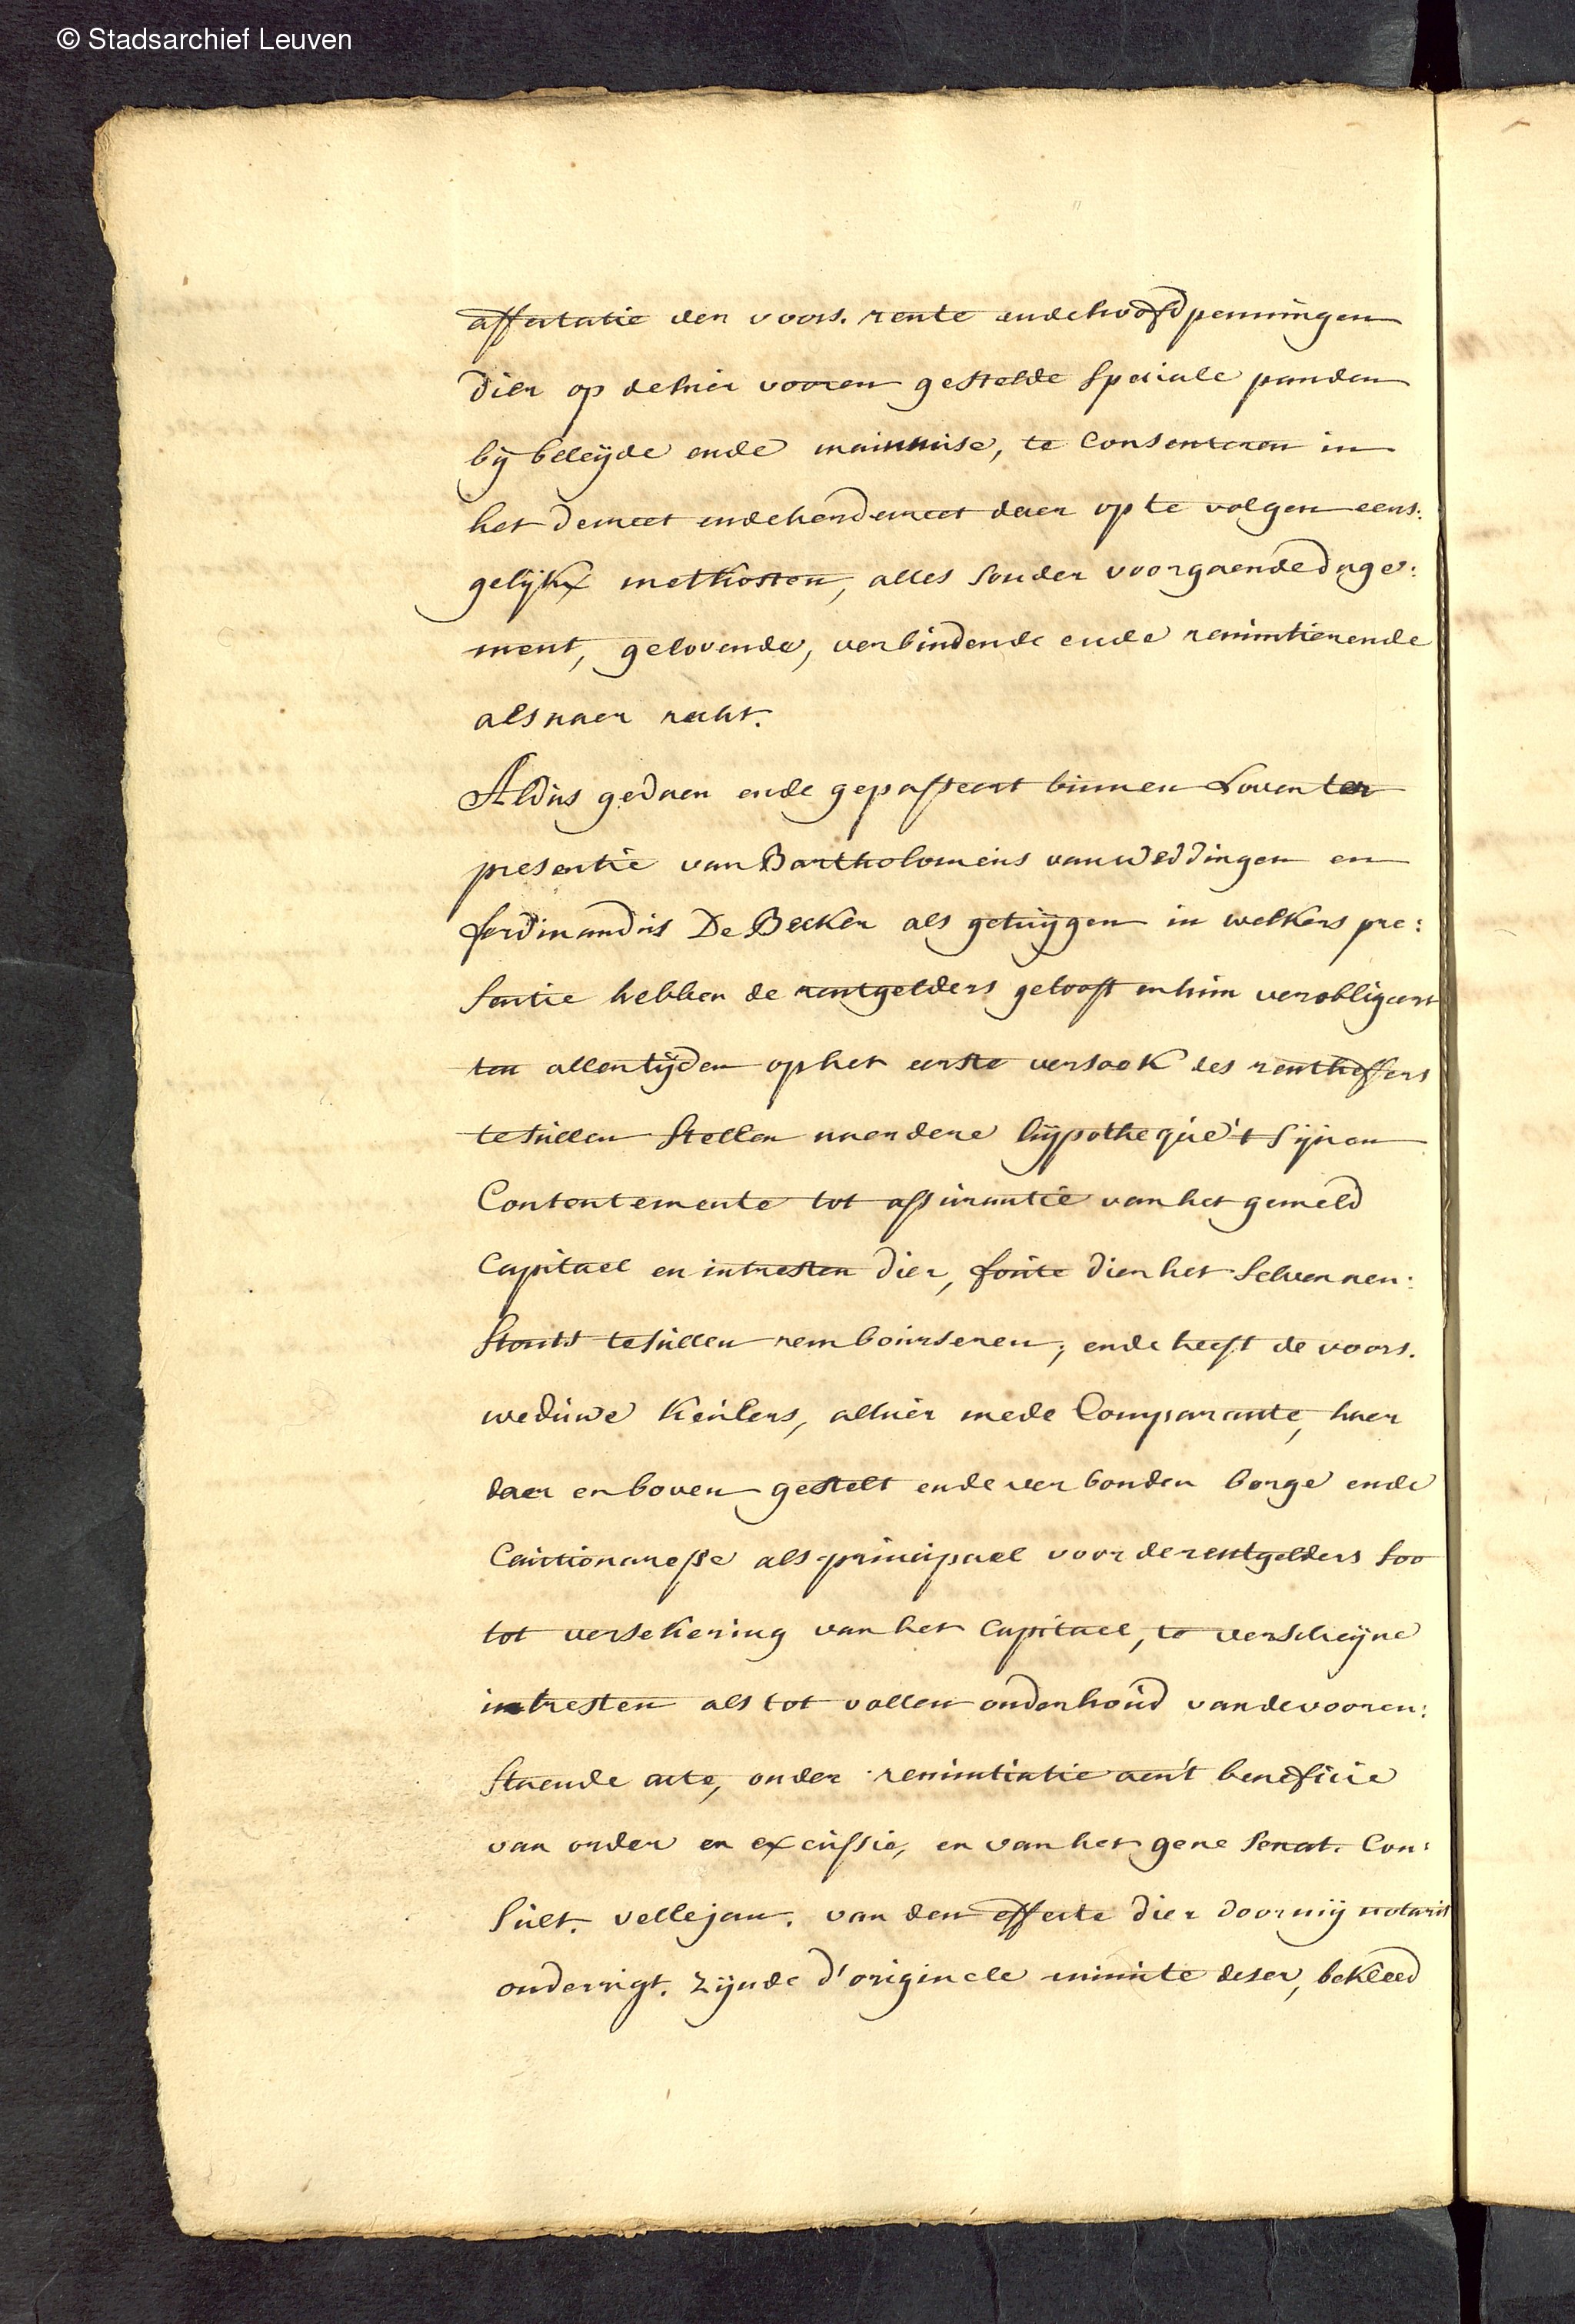 © Stadsarchief Leuven
affectatie der voors. rente ende hoofdpenningen
dier op de hier vooren gestelde speciale panden
bij beleijde ende mainmise, te consenteren in
het decreet ende herdecreet daer op te volgen eens:
gelijkx met kosten, alles sonder voorgaende dage:
ment, gelovende, verbindende ende renuntierende
als naer recht.
Aldus gedaen ende gepasseert binnen Loven ter
presentie van Bartholomeus van Weddingen en
ferdinandus De Becker als getuygen in welkers pre:
sentie hebben de rentgelders gelooft en hun verobligeert
ten allen tijden op het eerste versoek des rentheffers
te sullen stellen naerdere hijpotheque 't sijnen
Contentemente tot assurantie van het gemeld
Capitael en intresten dier, foute dier het selven aen:
stonts te sullen rembourseren; ende heeft de voors.
weduwe Keulers, alhier mede Comparante, haer
daer en boven gestelt ende verbonden borge ende
Cautionaresse als principael voor de rentgelders soo
tot versekering van het Capitael, te verscheijne
intresten als tot vollen onderhoud van de vooren:
staende acte, onder renuntiatie aen't beneficie
van order en excussie, en van het gene Senat. Con:
sult. vellejan. van den effecte dier door mij notaris
onderrigt. zijnde d'originele minute deser, bekleed